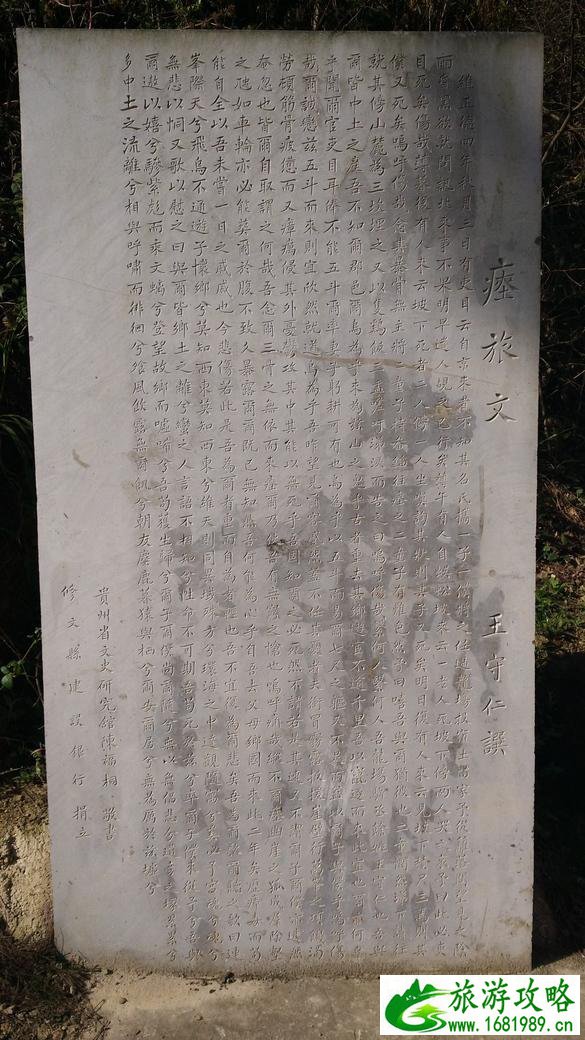 瘞旅文　王守仁譔
維正德四年秋月三日有吏目云自京來者不知其名氏攜一子一僕將之任過龍場投宿土苗家予從籬落間望見之陰
雨昏黑欲就問訊北來事不果明早遣人覘之已行矣薄午有人自蜈蚣坡來云一老人死坡下傍兩人哭之哀予曰此必吏
目死矣傷哉薄暮復有人來云坡下死者二人傍一人坐嘆詢其狀則其子又死矣明日復有人來云見坡下積尸三焉則其
僕又死矣嗚呼傷哉念其暴骨無主將二童子持畚鍤往瘞之二童子有難色然予曰嘻吾與爾猶彼也二童閔然涕下請往
就其傍山麓為三坎埋之又以隻鷄飯三盂嗟吁涕洟而告之曰嗚呼傷哉繄何人繄何人吾龍場驛丞餘姚王守仁也吾與
爾皆中土之產吾不知爾郡邑爾烏為乎來為茲山之鬼乎古者重去其鄉遊宦不逾千里吾以竄逐而來此宜也爾亦何辜
乎聞爾官吏目耳俸不能五斗爾率妻子躬耕可有也烏為乎以五斗而易爾七尺之軀又不足而益以爾子與僕乎嗚呼傷
哉爾誠戀茲五斗而來則宜欣然就道烏為乎吾昨望見爾容蹙然蓋不任其憂者夫衝冒霧露扳援崖壁行萬峯之頂飢渴
勞頓筋骨疲憊而又瘴癘侵其外憂鬱攻其中其能以無死乎吾固知爾之必死然不謂若是其速又不謂爾子爾僕亦遽然
奄忽也皆爾自取謂之何哉吾念爾三骨之無依而來瘞爾乃使吾有無窮之愴也嗚呼痛哉縱不爾瘞幽崖之狐成羣陰壑
之虺如車輪亦必能葬爾於腹不致久暴露爾爾既已無知然吾何能為心乎自吾去父母鄉國而來此二年矣歷瘴毒而苟
能自全以吾未嘗一日之戚戚也今悲傷若此是吾為爾者重而自為者輕也吾不宜復為爾悲矣吾為爾歌爾聽之歌曰連
峯際天兮飛鳥不通遊子懷鄉兮莫知西東莫知西東兮維天則同異域殊方兮環海之中達觀隨寓兮奚必予宮魂兮魂兮
無悲以恫又歌以慰之曰與爾皆鄉土之離兮蠻之人言語不相知兮性命不可期吾苟死於茲兮率爾子僕來從予兮吾與
爾遨以嬉兮驂紫彪而乘文螭兮登望故鄉而噓唏兮吾苟獲生歸兮爾子爾僕尚爾隨兮無以無侶悲兮道旁之塚累累兮
多中土之流離兮相與呼嘯而徘徊兮飱風飲露無爾飢兮朝友麋鹿暮猿與栖兮爾安爾居兮無為厲於茲墟兮
貴州省文史研究館陳福桐敬書
修文縣建設銀行捐立
旅游攻略
www.1681989.cn